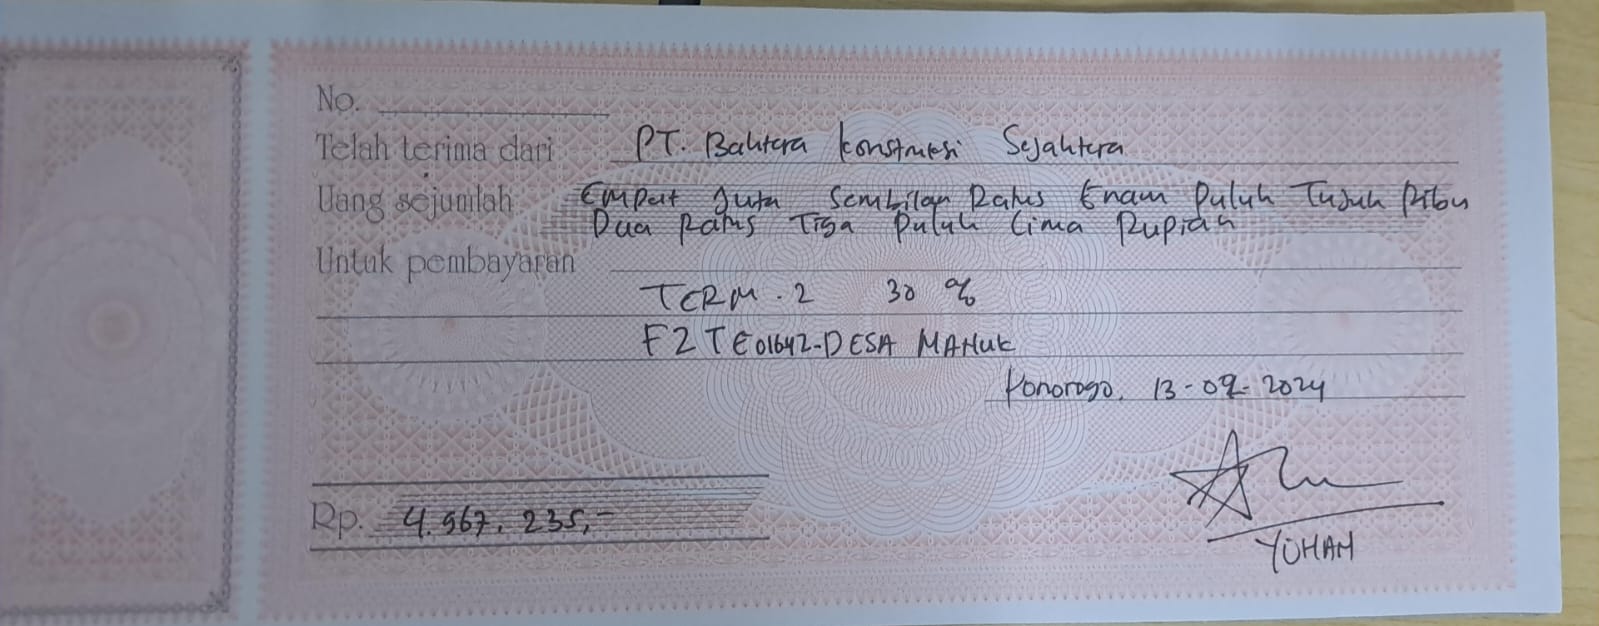 No.
Telah terima dari PT. Bahtera Konstruksi Sejahtera
Uang sejumlah Empat Juta Sembilan Ratus Enam Puluh Tujuh Ribu
Dua Ratus Tiga Puluh Lima Rupiah
Untuk pembayaran
TERM - 2 30 %
F2TE01642-DESA MANUK
Ponorogo, 13-09-2024
Rp. 4.967.235,-
YUHAM